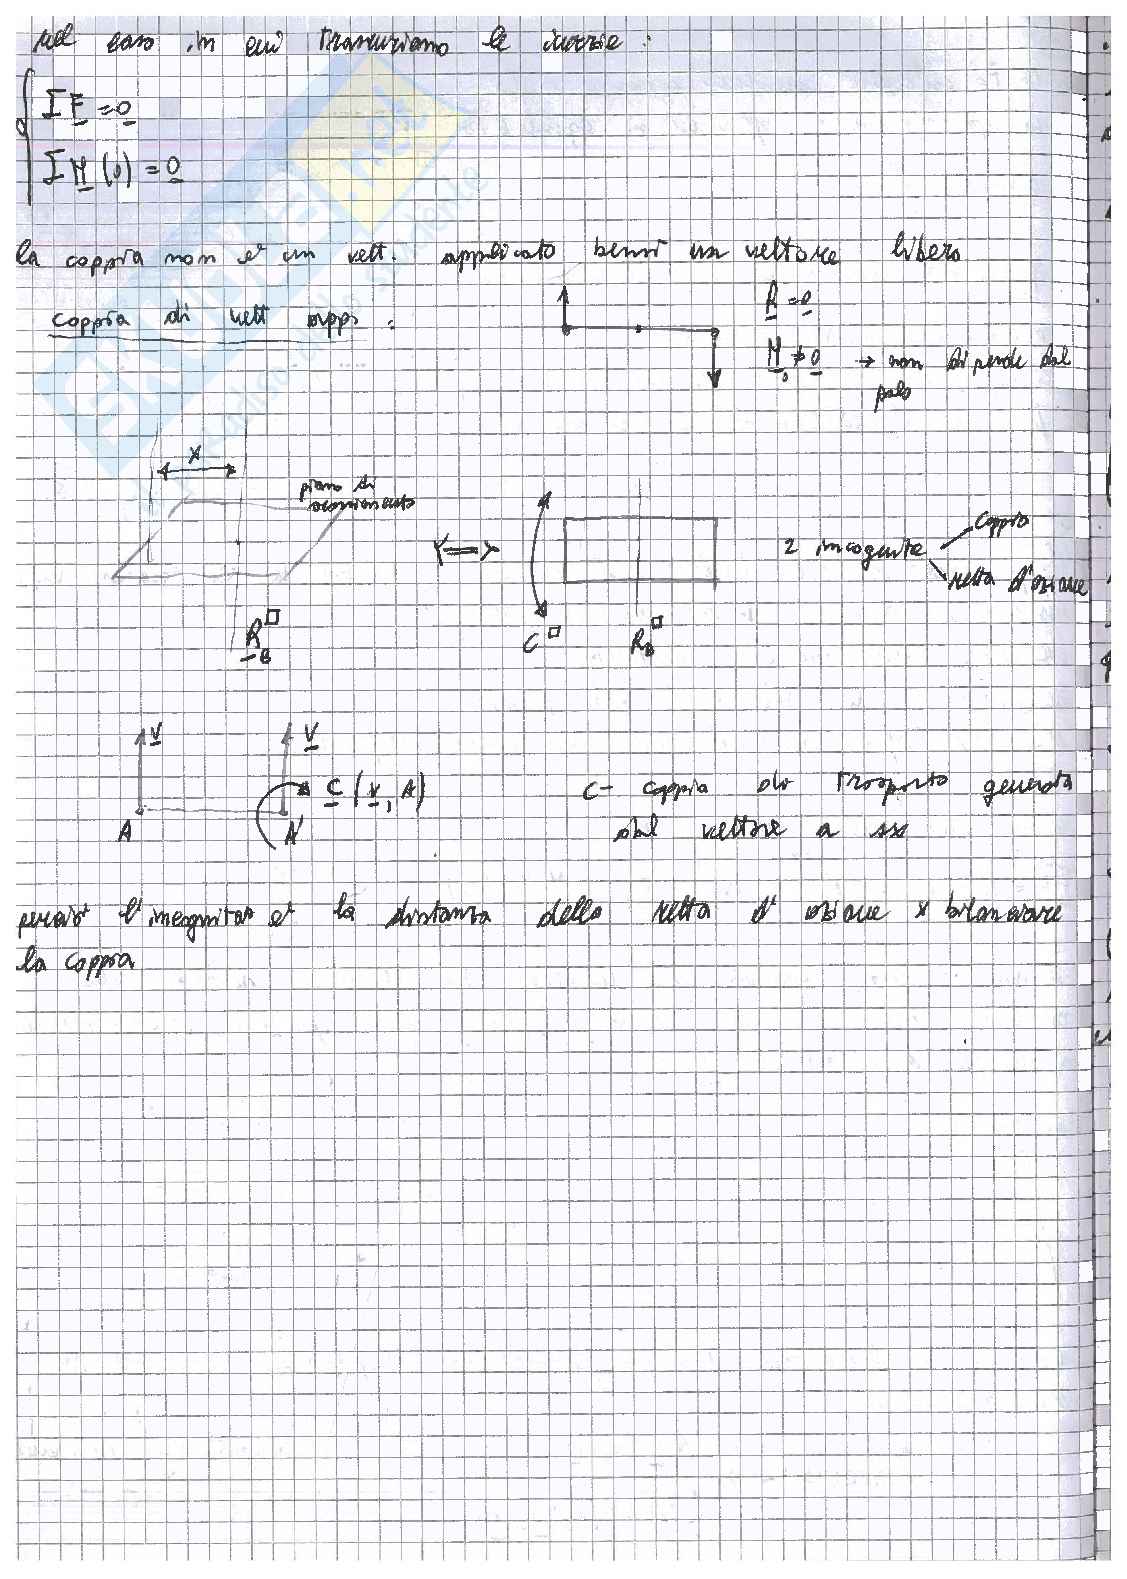 nel caso in cui trascuriamo le inerzie :
Σ F = 0
Σ M (0) = 0
la coppia non e' un vett. applicato bensì un vettore libero
coppia di vett app. :
R = 0
M₀ ≠ 0 → non dipende dal
polo
x
piano di
scorrimento
2 incognite
coppia
retta d'azione
R_B
C
R_B
V
V
C (v, A)
A
A'
C - coppia di trasporto generata
dal vettore a sx
perciò l'incognita e' la distanza della retta d'azione x bilanciare
la coppia
SKUOLA.net